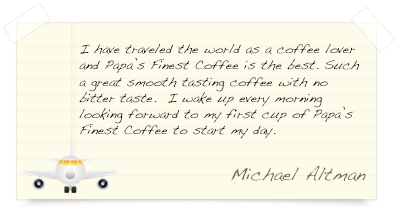 I have traveled the world as a coffee lover
and Papa's Finest Coffee is the best. Such
a great smooth tasting coffee with no
bitter taste. I wake up every morning
looking forward to my first cup of Papa's
Finest Coffee to start my day.
Michael Altman